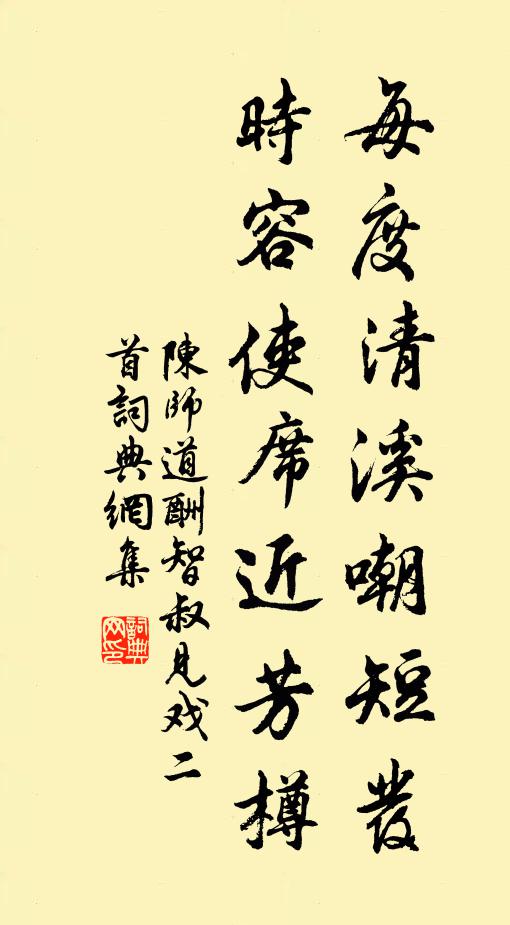 每度清溪嘲短發
時容使席近芳樽
陳師道酬智叔見戏二
首詞典網集
詞典網印